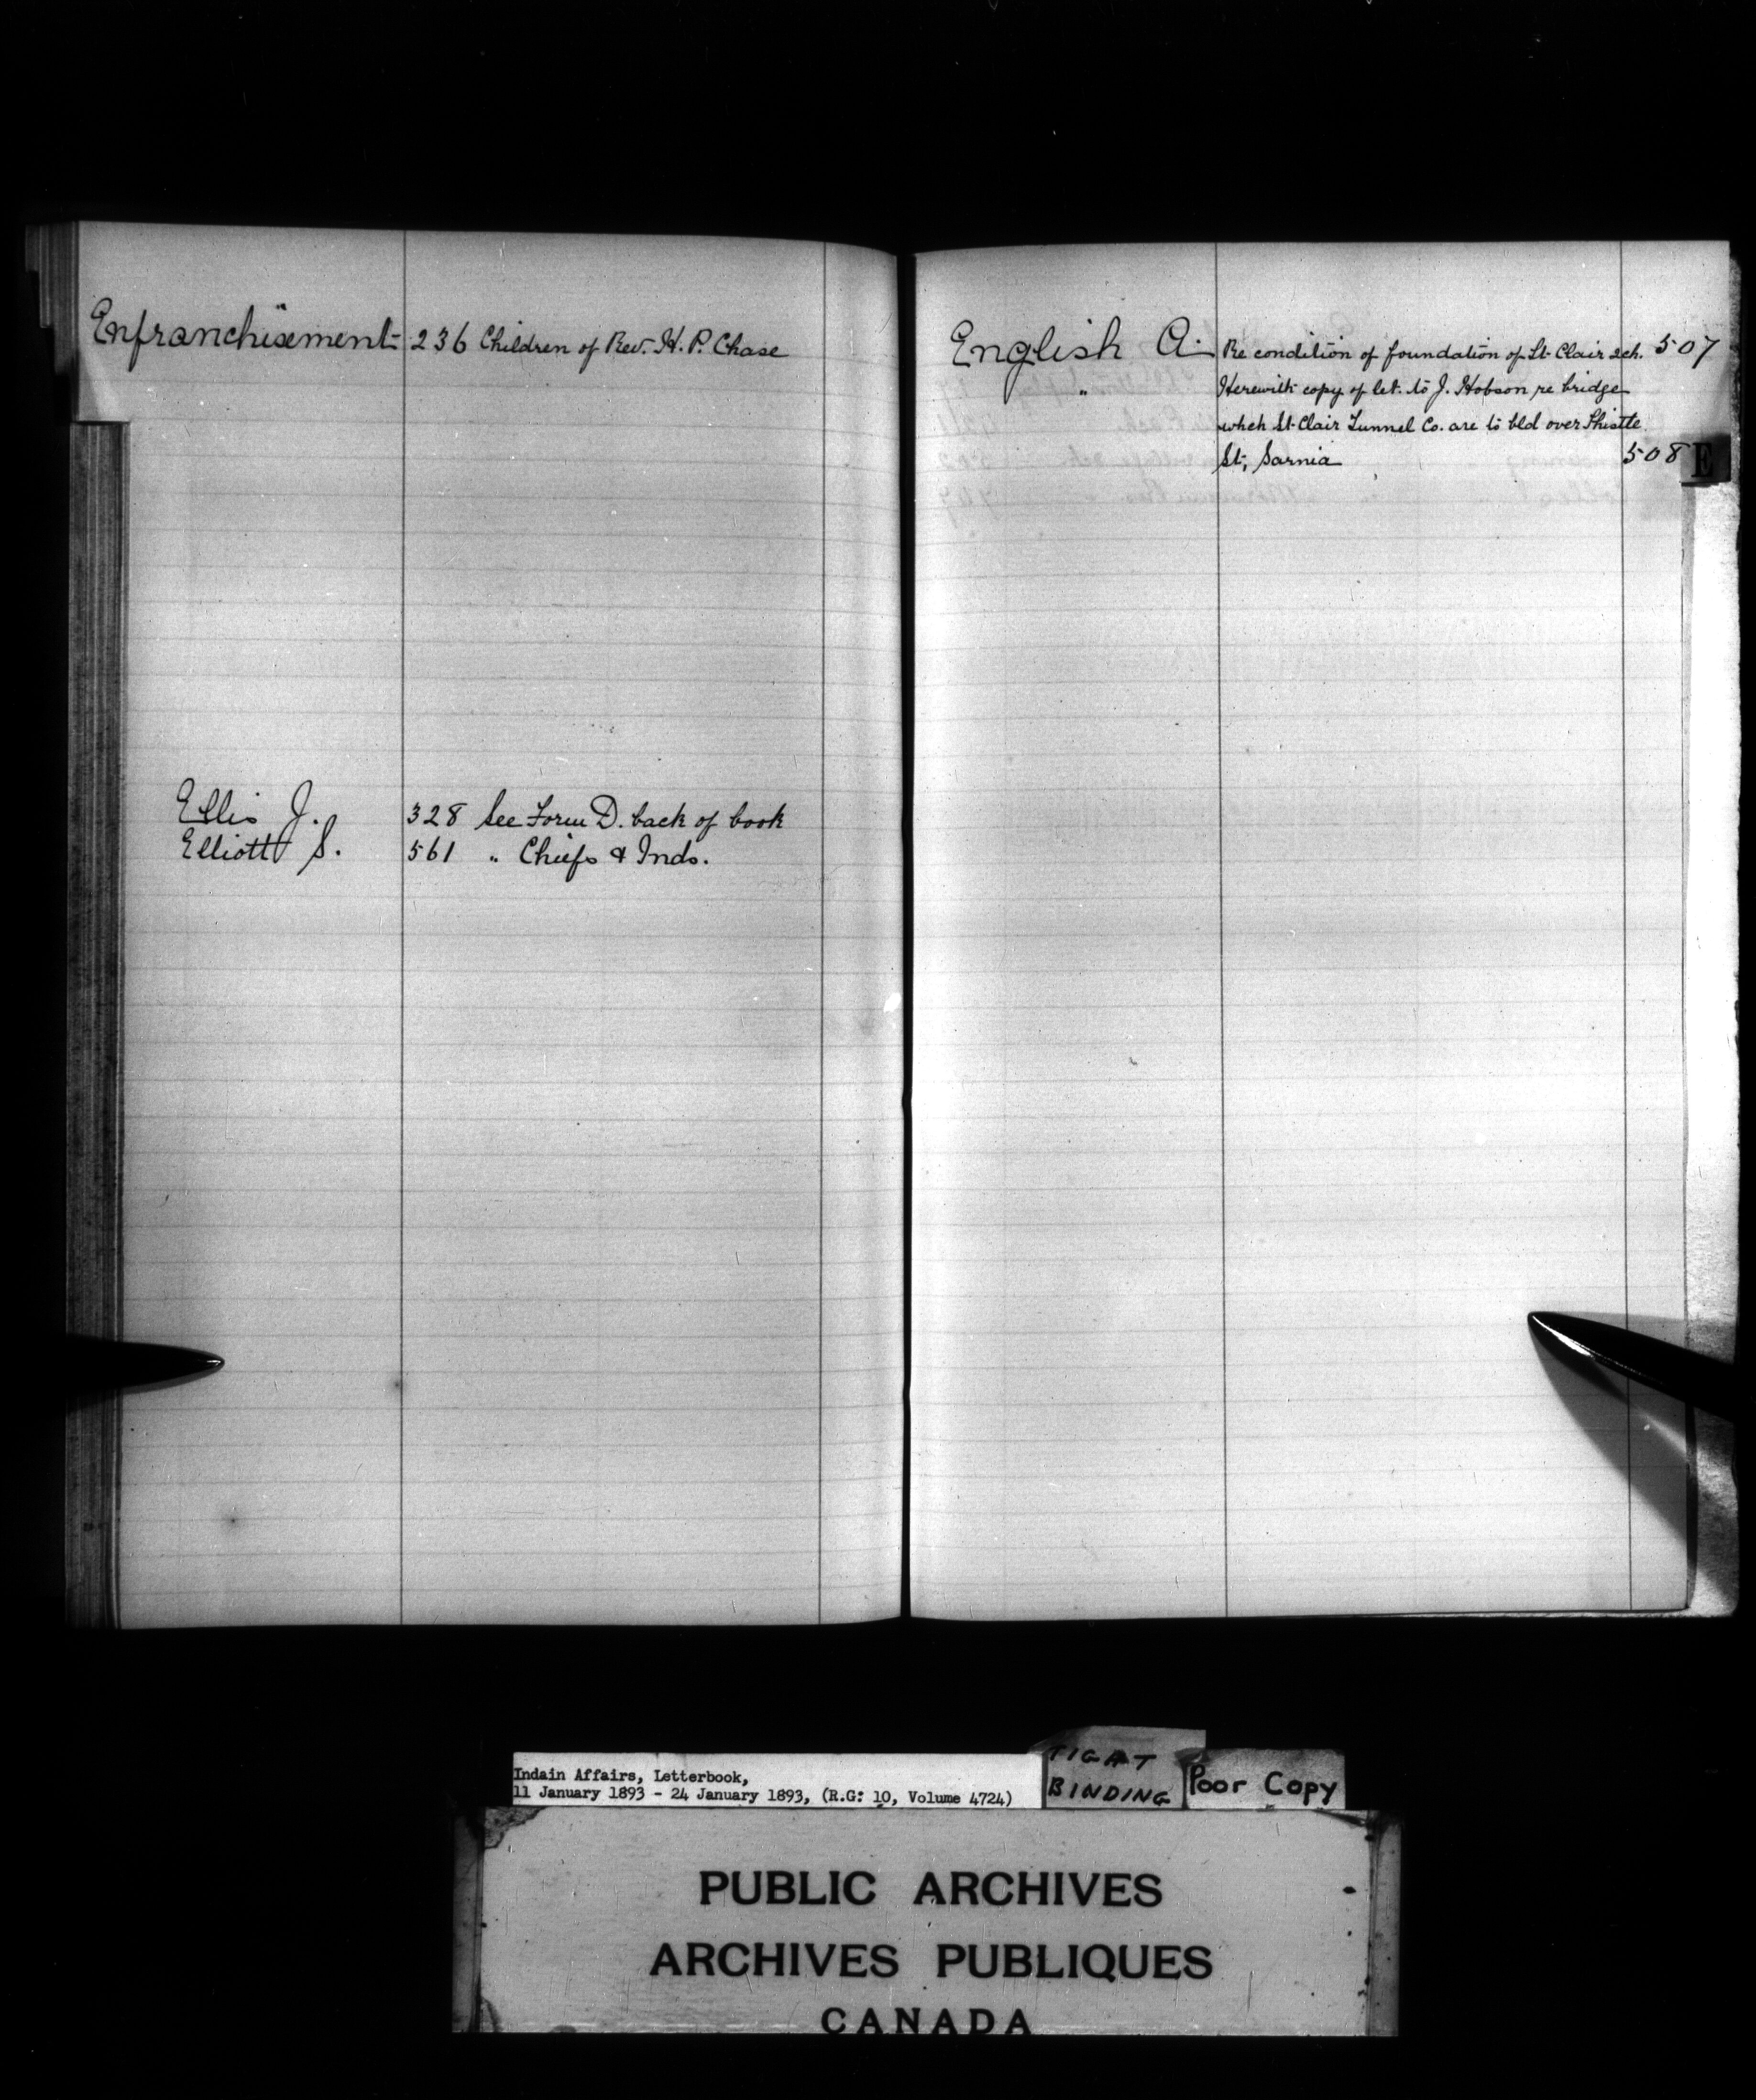 Enfranchisement 236 Children of Rev. H. P. Chase
Ellis J. 328 See Form D. back of book
Elliott S. 561 " Chiefs & Inds.
English A. Re condition of foundation of St. Clair sch. 507
" Herewith copy of let. to J. Hobson re bridge
whch St. Clair Tunnel Co. are to bld over Thistle
St, Sarnia 508
E
Indain Affairs, Letterbook,
11 January 1893 - 24 January 1893, (R.G: 10, Volume 4724)
TIGHT
BINDING
Poor Copy
PUBLIC ARCHIVES
ARCHIVES PUBLIQUES
CANADA